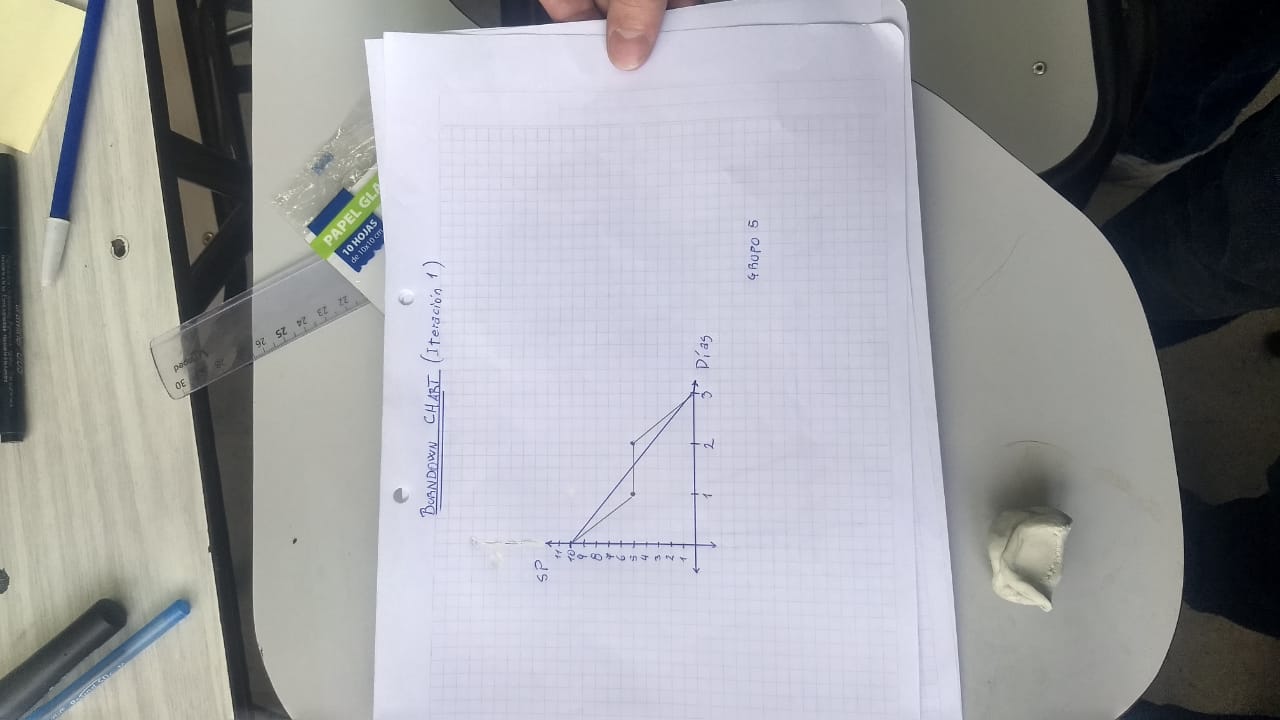 BURNDOWN CHART (Iteración 1)
SP
11
10
9
8
7
6
5
4
3
2
1
1 2 3 Días
GRUPO 5
PAPEL GLA
10 HOJAS
de 10x10 cm
22 23 24 25 26 28 30